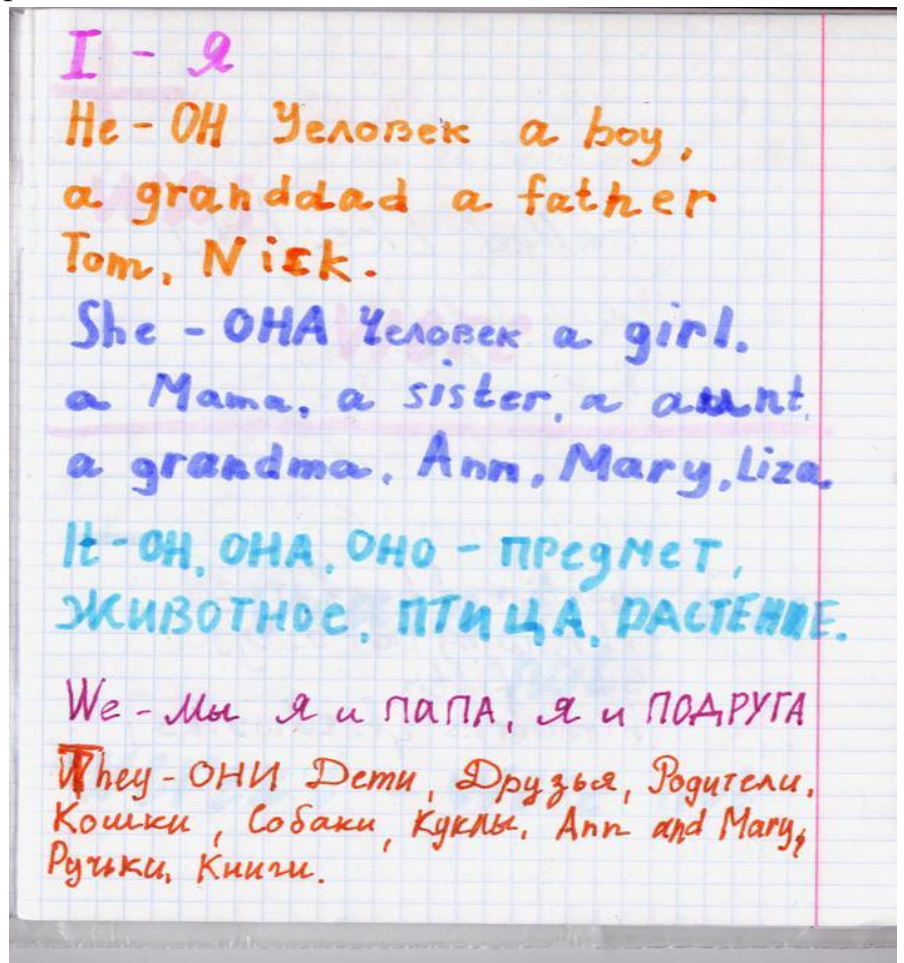 I - Я
He - ОН Человек a boy,
a granddad a father
Tom, Nick.
She - ОНА Человек a girl.
a Mama, a sister, a aunt,
a grandma, Ann, Mary, Liza.
It - ОН, ОНА, ОНО - ПРЕДМЕТ,
ЖИВОТНОЕ, ПТИЦА, РАСТЕНИЕ.
We - Мы Я и ПАПА, Я и ПОДРУГА
They - ОНИ Дети, Друзья, Родители,
Кошки, Собаки, Куклы, Ann and Mary,
Ручьки, Книги.